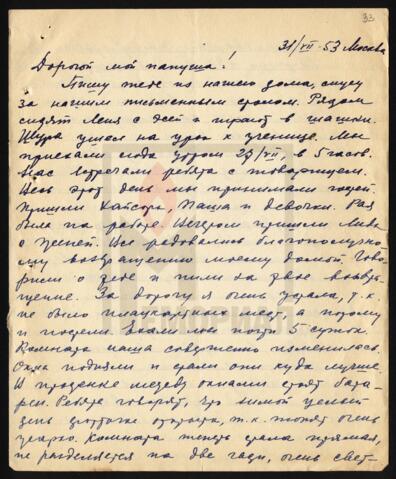 33
31/VII-53 Москва
Дорогой мой папуша!
Пишу тебе из нашего дома, сижу
за нашим письменным столом. Рядом
сидят Леня с Асей и играют в шашки.
Шура ушел на урок к ученице. Мы
приехали сюда утром 29/VII, в 5 часов.
Нас встречали ребята с товарищем.
Весь этот день мы принимали гостей.
Пришли Паша и девочки. Рая
была на работе. Вечером пришли Лида
с Женей. Все радовались благополучно-
му возвращению моему домой. Гово-
рили о тебе и пили за твое возвра-
щение. За дорогу я очень устала, т.к.
не было плацкартных мест, а потому
и постели. Ехали мы почти 5 суток.
Комната наша совершенно изменилась.
Окна подняли и стали они куда лучше.
В простенке между окнами стоят бата-
реи. Ребята говорят, что зимой целый
день форточка открыта, т.к. топят очень
жарко. Комната теперь стала прямая,
не разделяется на две части, очень свет-